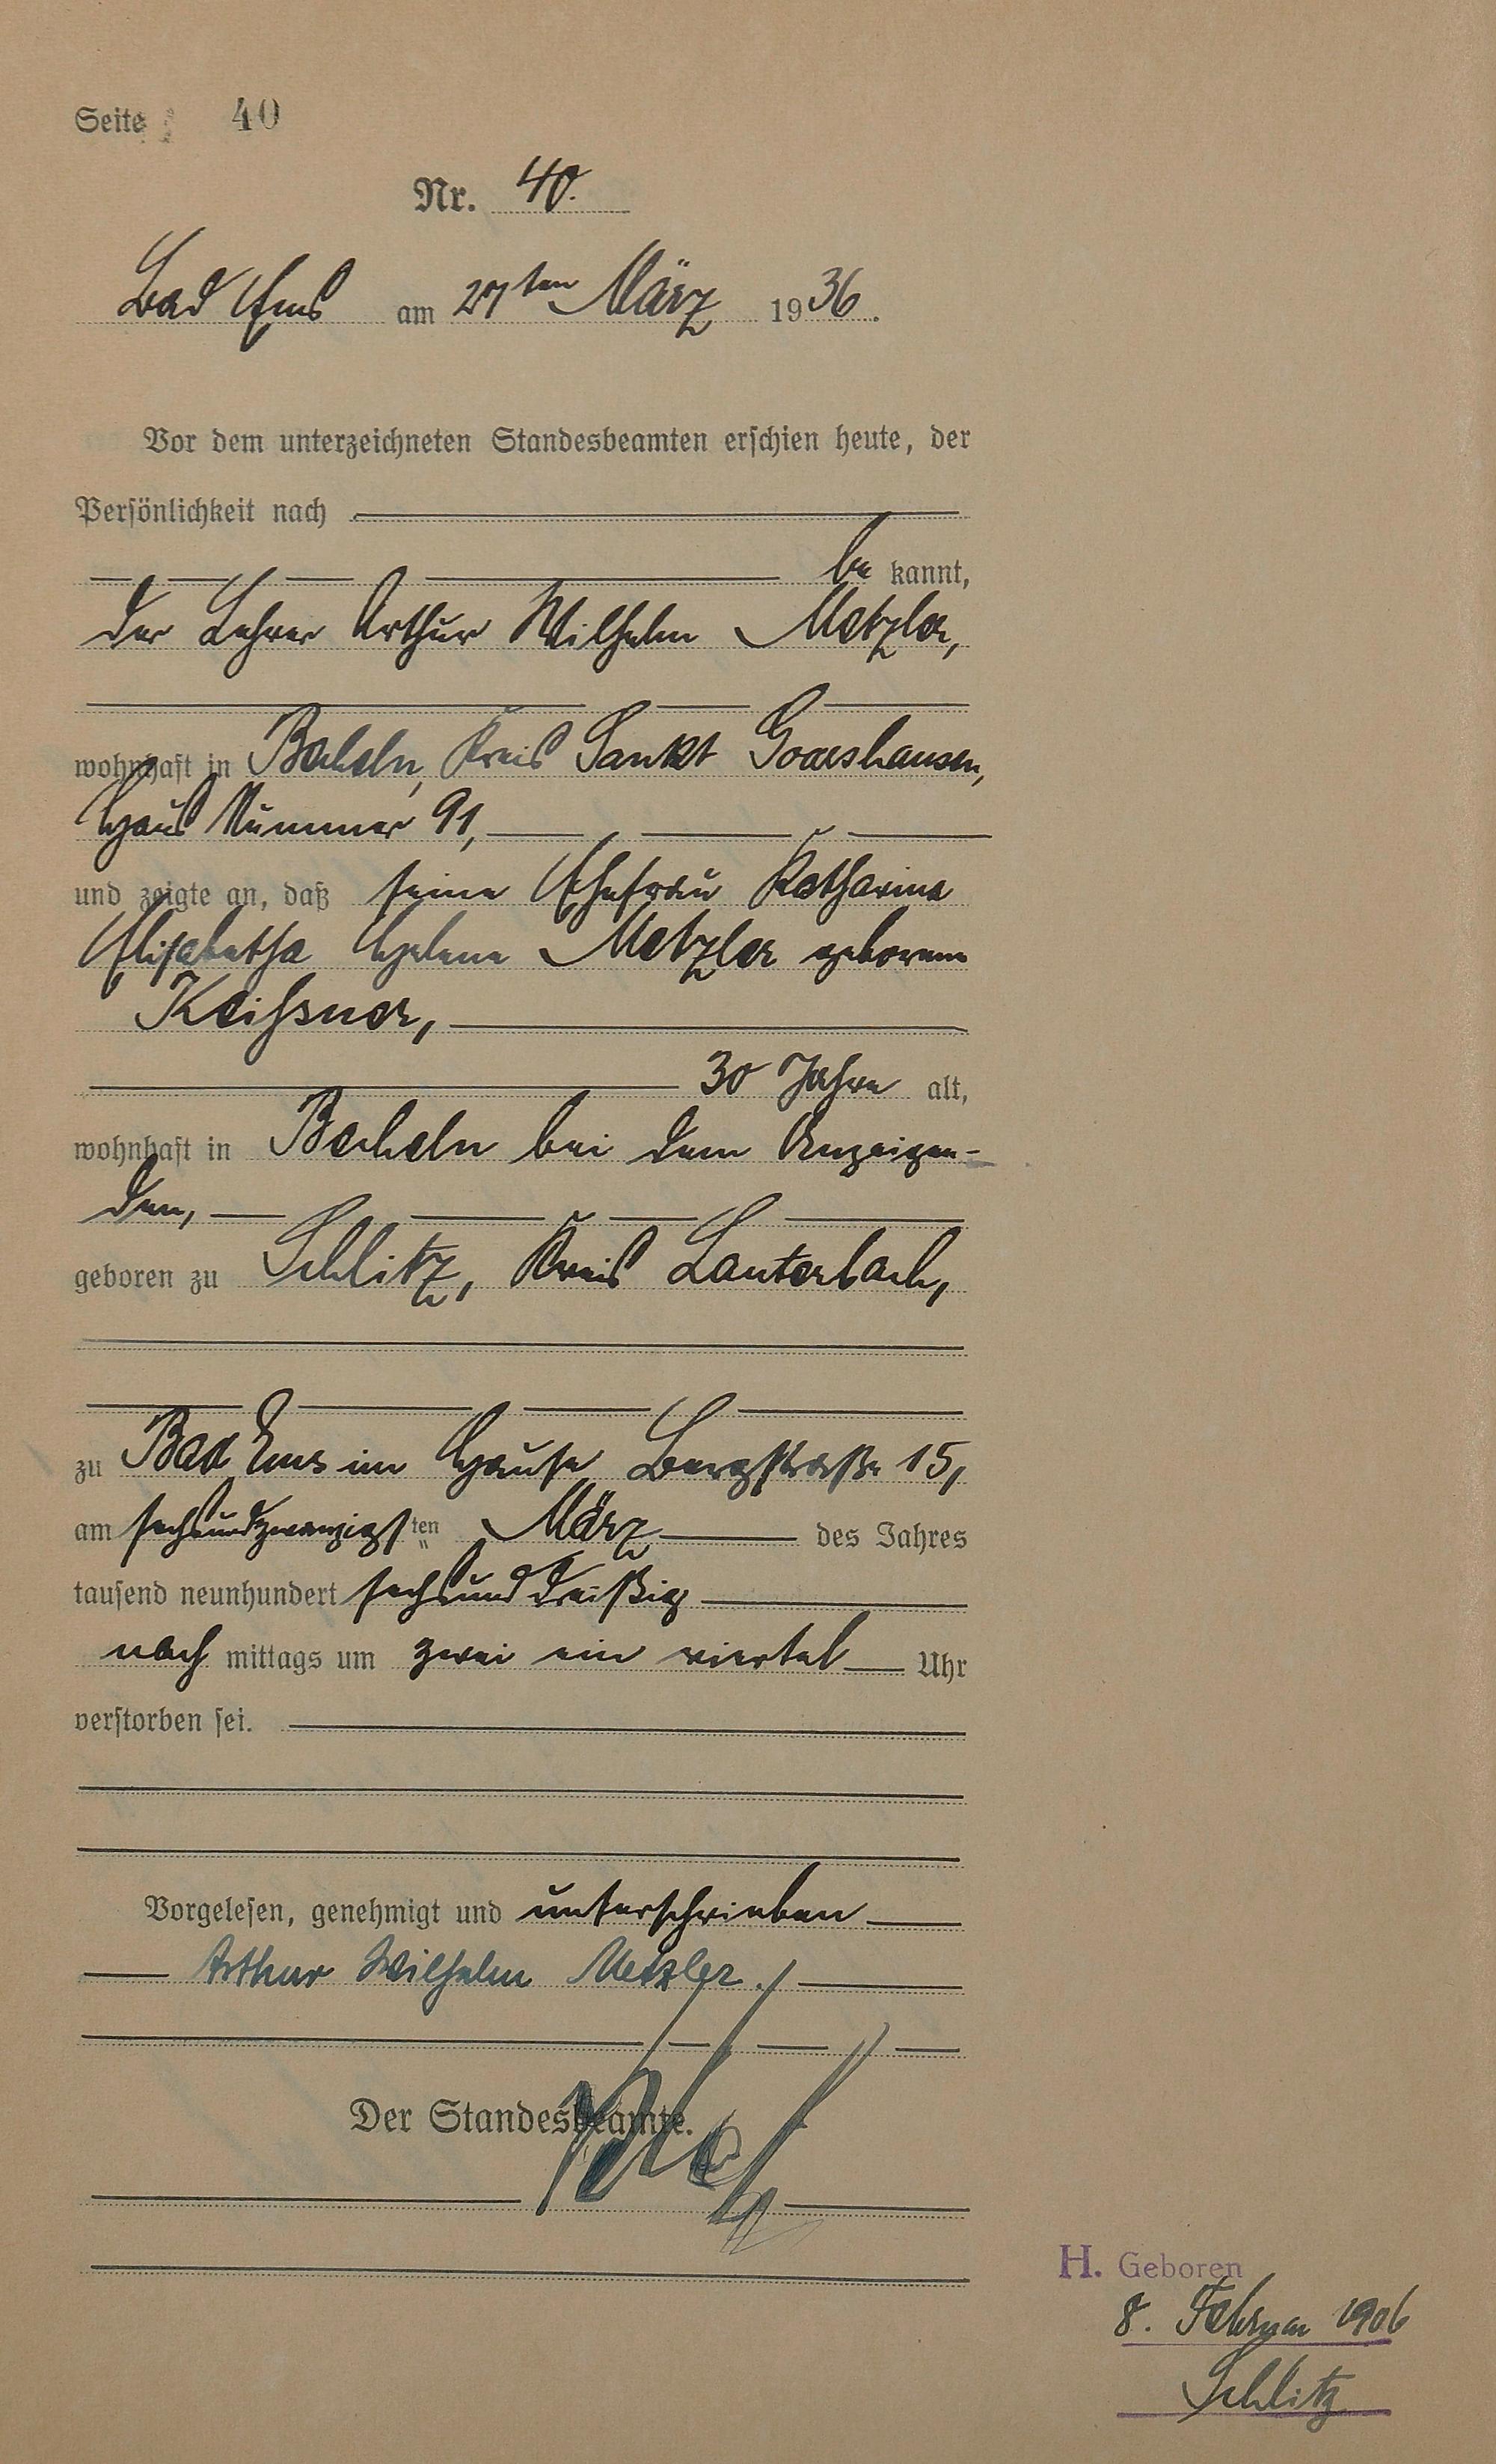 Seite 40
Nr. 40.
Bad Ems am 27ten März 1936.
Vor dem unterzeichneten Standesbeamten erschien heute, der
Persönlichkeit nach
be kannt,
der Lehrer Arthur Wilhelm Metzler,
wohnhaft in Bacheln, Kreis Sankt Goarshausen,
Haus Nummer 91,
und zeigte an, daß seine Ehefrau Katharina
Elisabetha Helene Metzler geborene
Keißner,
30 Jahre alt,
wohnhaft in Bacheln bei dem Anzeigen-
den,
geboren zu Schlitz, Kreis Lauterbach,
zu Bad Ems im Hause Bergstraße 15,
am sechsundzwanzigsten März des Jahres
tausend neunhundert sechsunddreißig
nach mittags um zwei ein viertel Uhr
verstorben sei.
Vorgelesen, genehmigt und unterschrieben
Arthur Wilhelm Metzler.
Der Standesbeamte.
H. Geboren
8. Februar 1906
Schlitz